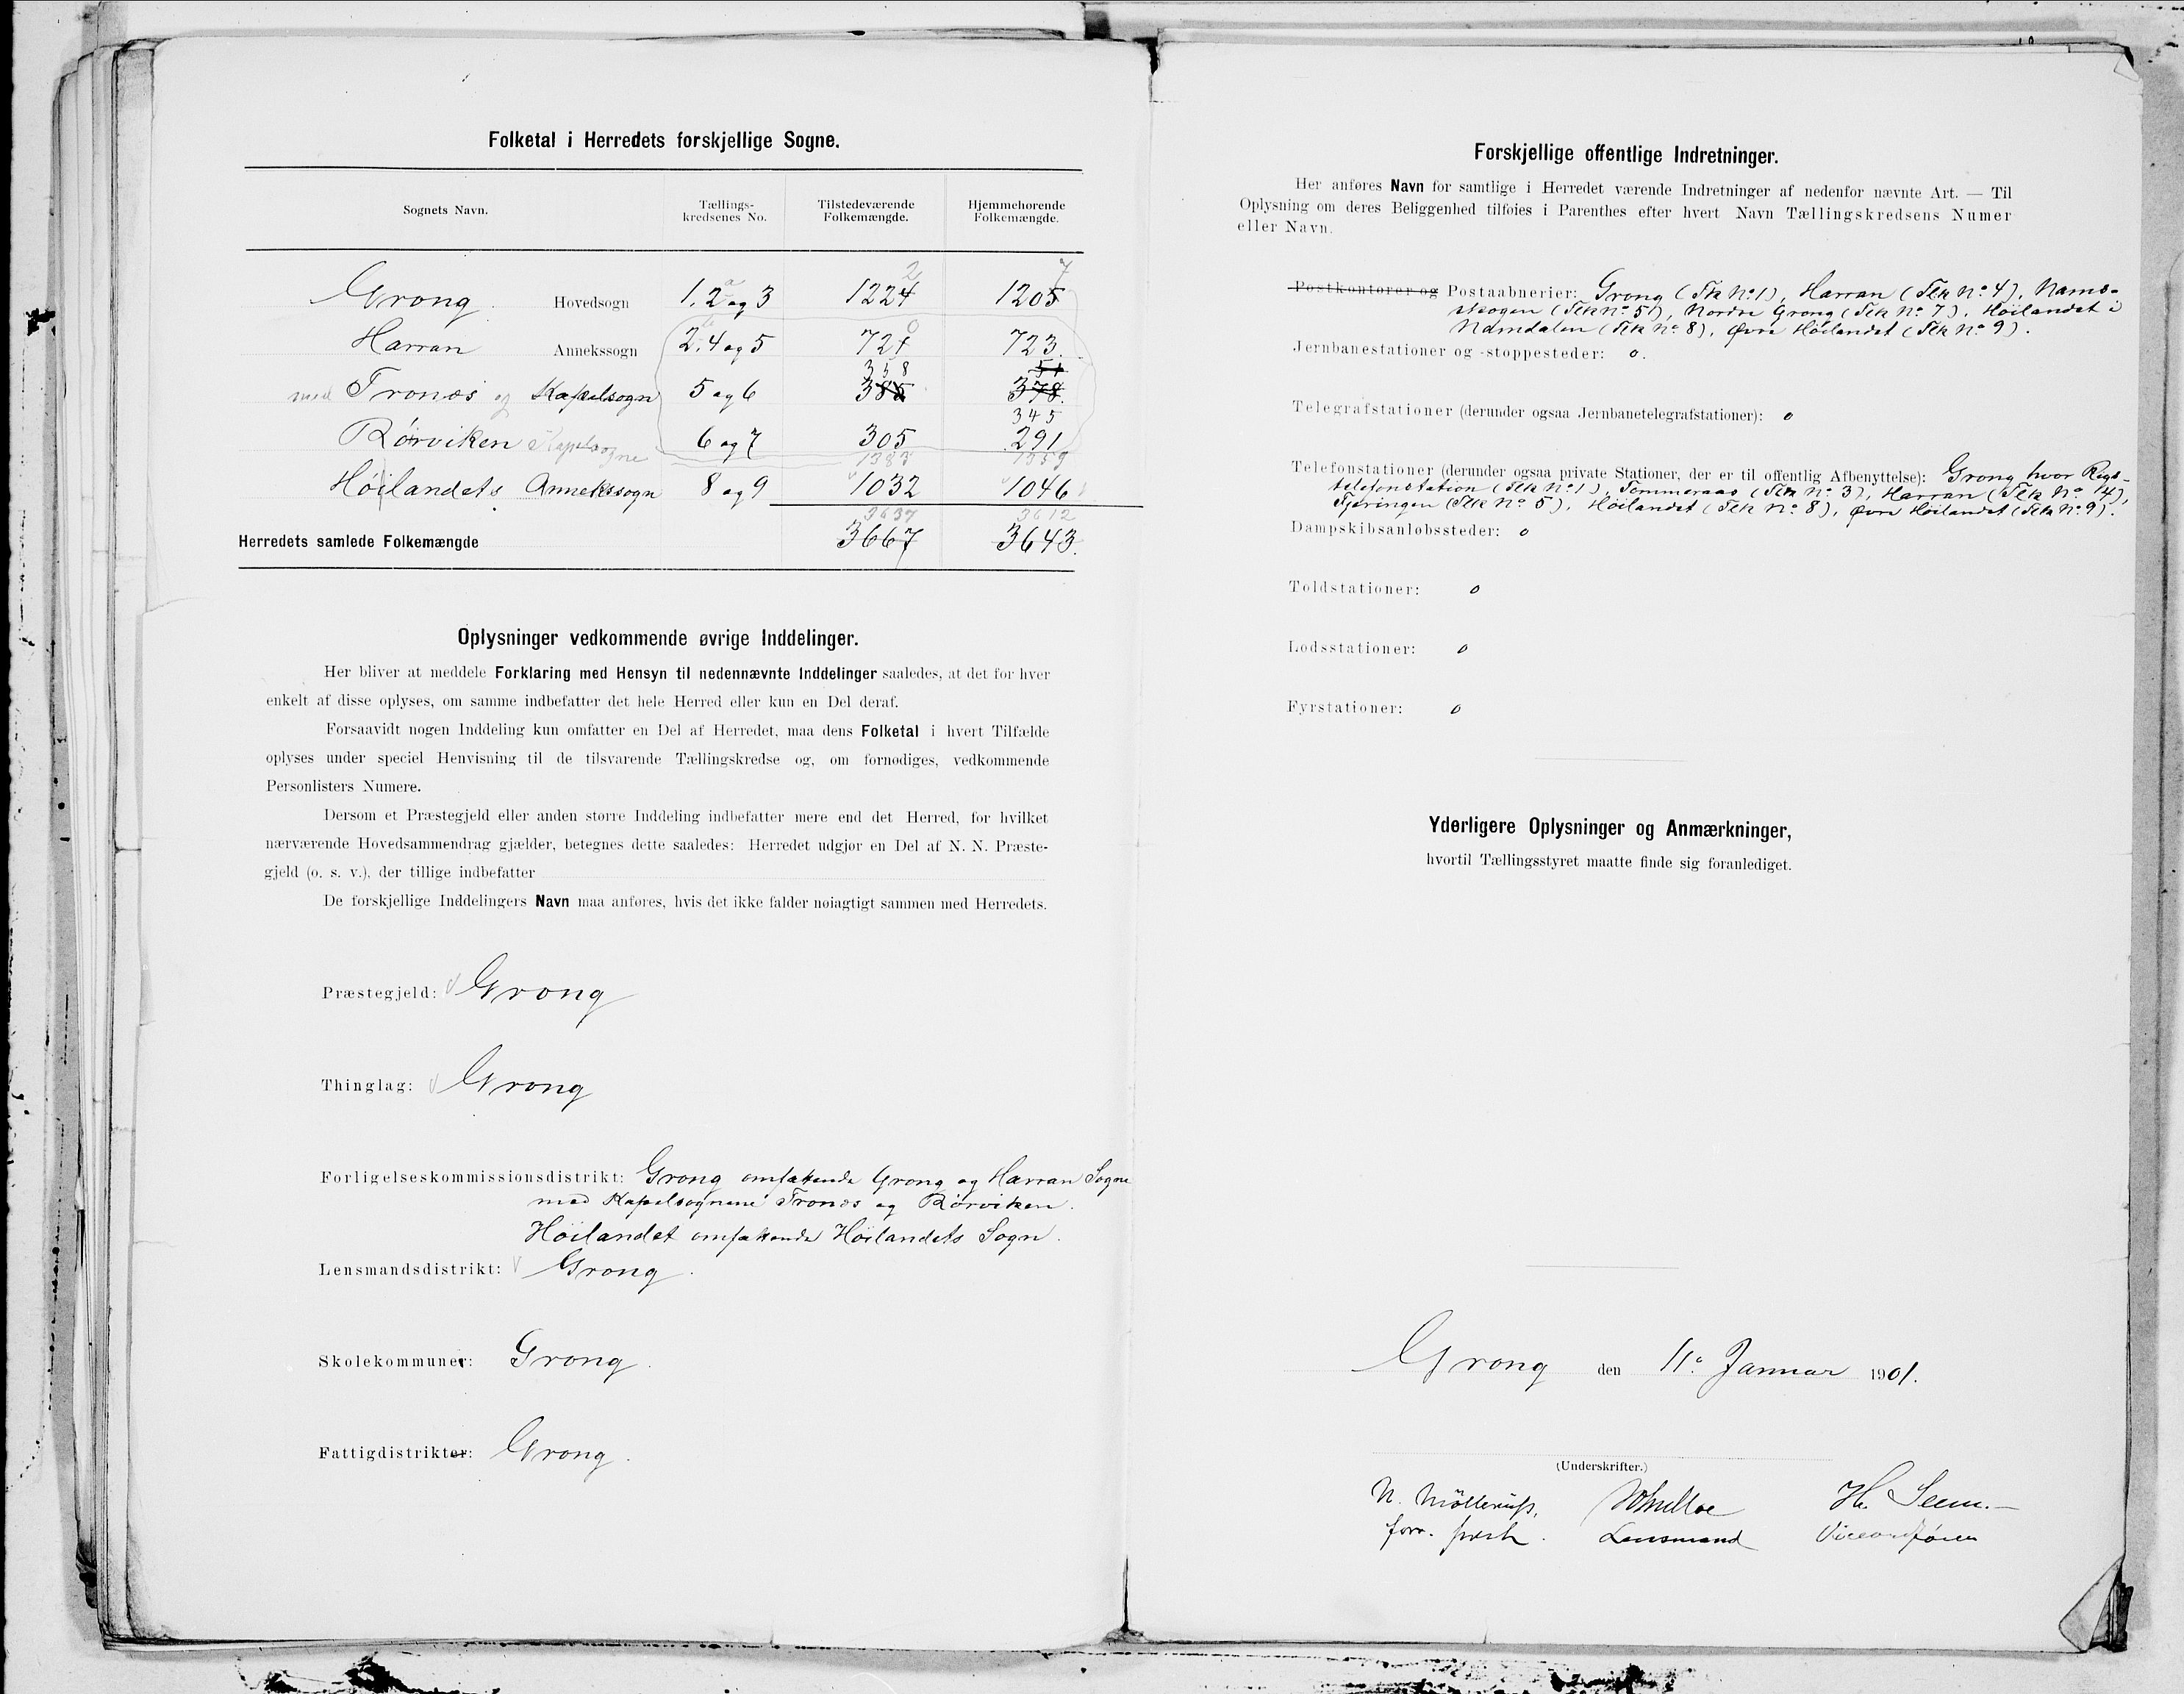 Folketal i Herredets forskjellige Sogne.
Sognets Navn. Tællings-kredsenes No. Tilstedeværende Folkemængde. Hjemmehørende Folkemængde.
2 7
Grong. Hovedsogn 1, 2 a og 3 1224 1205
0
Harran Annekssogn 2, 4 og 5 724 723.
358
med Tronæs og Kapelsogn 5 og 6 385 378.
345
Rörviken Kapelsogne 6 og 7 305 291
1383 1359
Höilandets Annekssogn 8 og 9 1032 1046
3637 3612
Herredets samlede Folkemængde 3667 3643.
Oplysninger vedkommende øvrige Inddelinger.
Her bliver at meddele Forklaring med Hensyn til nedennævnte Inddelinger saaledes, at det for hver
enkelt af disse oplyses, om samme indbefatter det hele Herred eller kun en Del deraf.
Forsaavidt nogen Inddeling kun omfatter en Del af Herredet, maa dens Folketal i hvert Tilfælde
oplyses under speciel Henvisning til de tilsvarende Tællingskredse og, om fornødiges, vedkommende
Personlisters Numere.
Dersom et Præstegjeld eller anden større Inddeling indbefatter mere end det Herred, for hvilket
nærværende Hovedsammendrag gjælder, betegnes dette saaledes: Herredet udgjør en Del af N. N. Præste-
gjeld (o. s. v.), der tillige indbefatter
De forskjellige Inddelingers Navn maa anføres, hvis det ikke falder nøiagtigt sammen med Herredets.
Præstegjeld: Grong
Thinglag: Grong
Forligelseskommissionsdistrikt: Grong omfattende Grong og Harran Sogne
med Kapelsognene Tronæs og Rörviken.
Höilandet omfattende Höilandets Sogn.
Lensmandsdistrikt: Grong.
Skolekommuner: Grong.
Fattigdistrikter: Grong.
Forskjellige offentlige Indretninger.
Her anføres Navn for samtlige i Herredet værende Indretninger af nedenfor nævnte Art. — Til
Oplysning om deres Beliggenhed tilføies i Parenthes efter hvert Navn Tællingskredsens Numer
eller Navn.
Postkontorer og Postaabnerier: Grong (Tk No 1), Harran (Tlk No 4), Nams-
skogen (Tlk No 5), Nordre Grong (Tlk No 7), Höilandet i
Namdalen (Tlk No 8), Øvre Höilandet (Tlk No 9).
Jernbanestationer og -stoppesteder: o.
Telegrafstationer (derunder ogsaa Jernbanetelegrafstationer): o
Telefonstationer (derunder ogsaa private Stationer, der er til offentlig Afbenyttelse): Grong hvor Rigs-
telefonstation (Tlk No 1), Tømmeraas (Tlk No 3), Harran (Tlk No 4),
Fjerringen (Tlk No 5), Höilandet (Tlk No 8), Øvre Höilandet (Tlk No 9).
Dampskibsanløbssteder: o
Toldstationer: o
Lodsstationer: o
Fyrstationer: o
Yderligere Oplysninger og Anmærkninger,
hvortil Tællingsstyret maatte finde sig foranlediget.
Grong den 11. Januar 1901.
(Underskrifter.)
N. Möllerup, H. Seem.
forr. præst. Lensmand Viceordfører